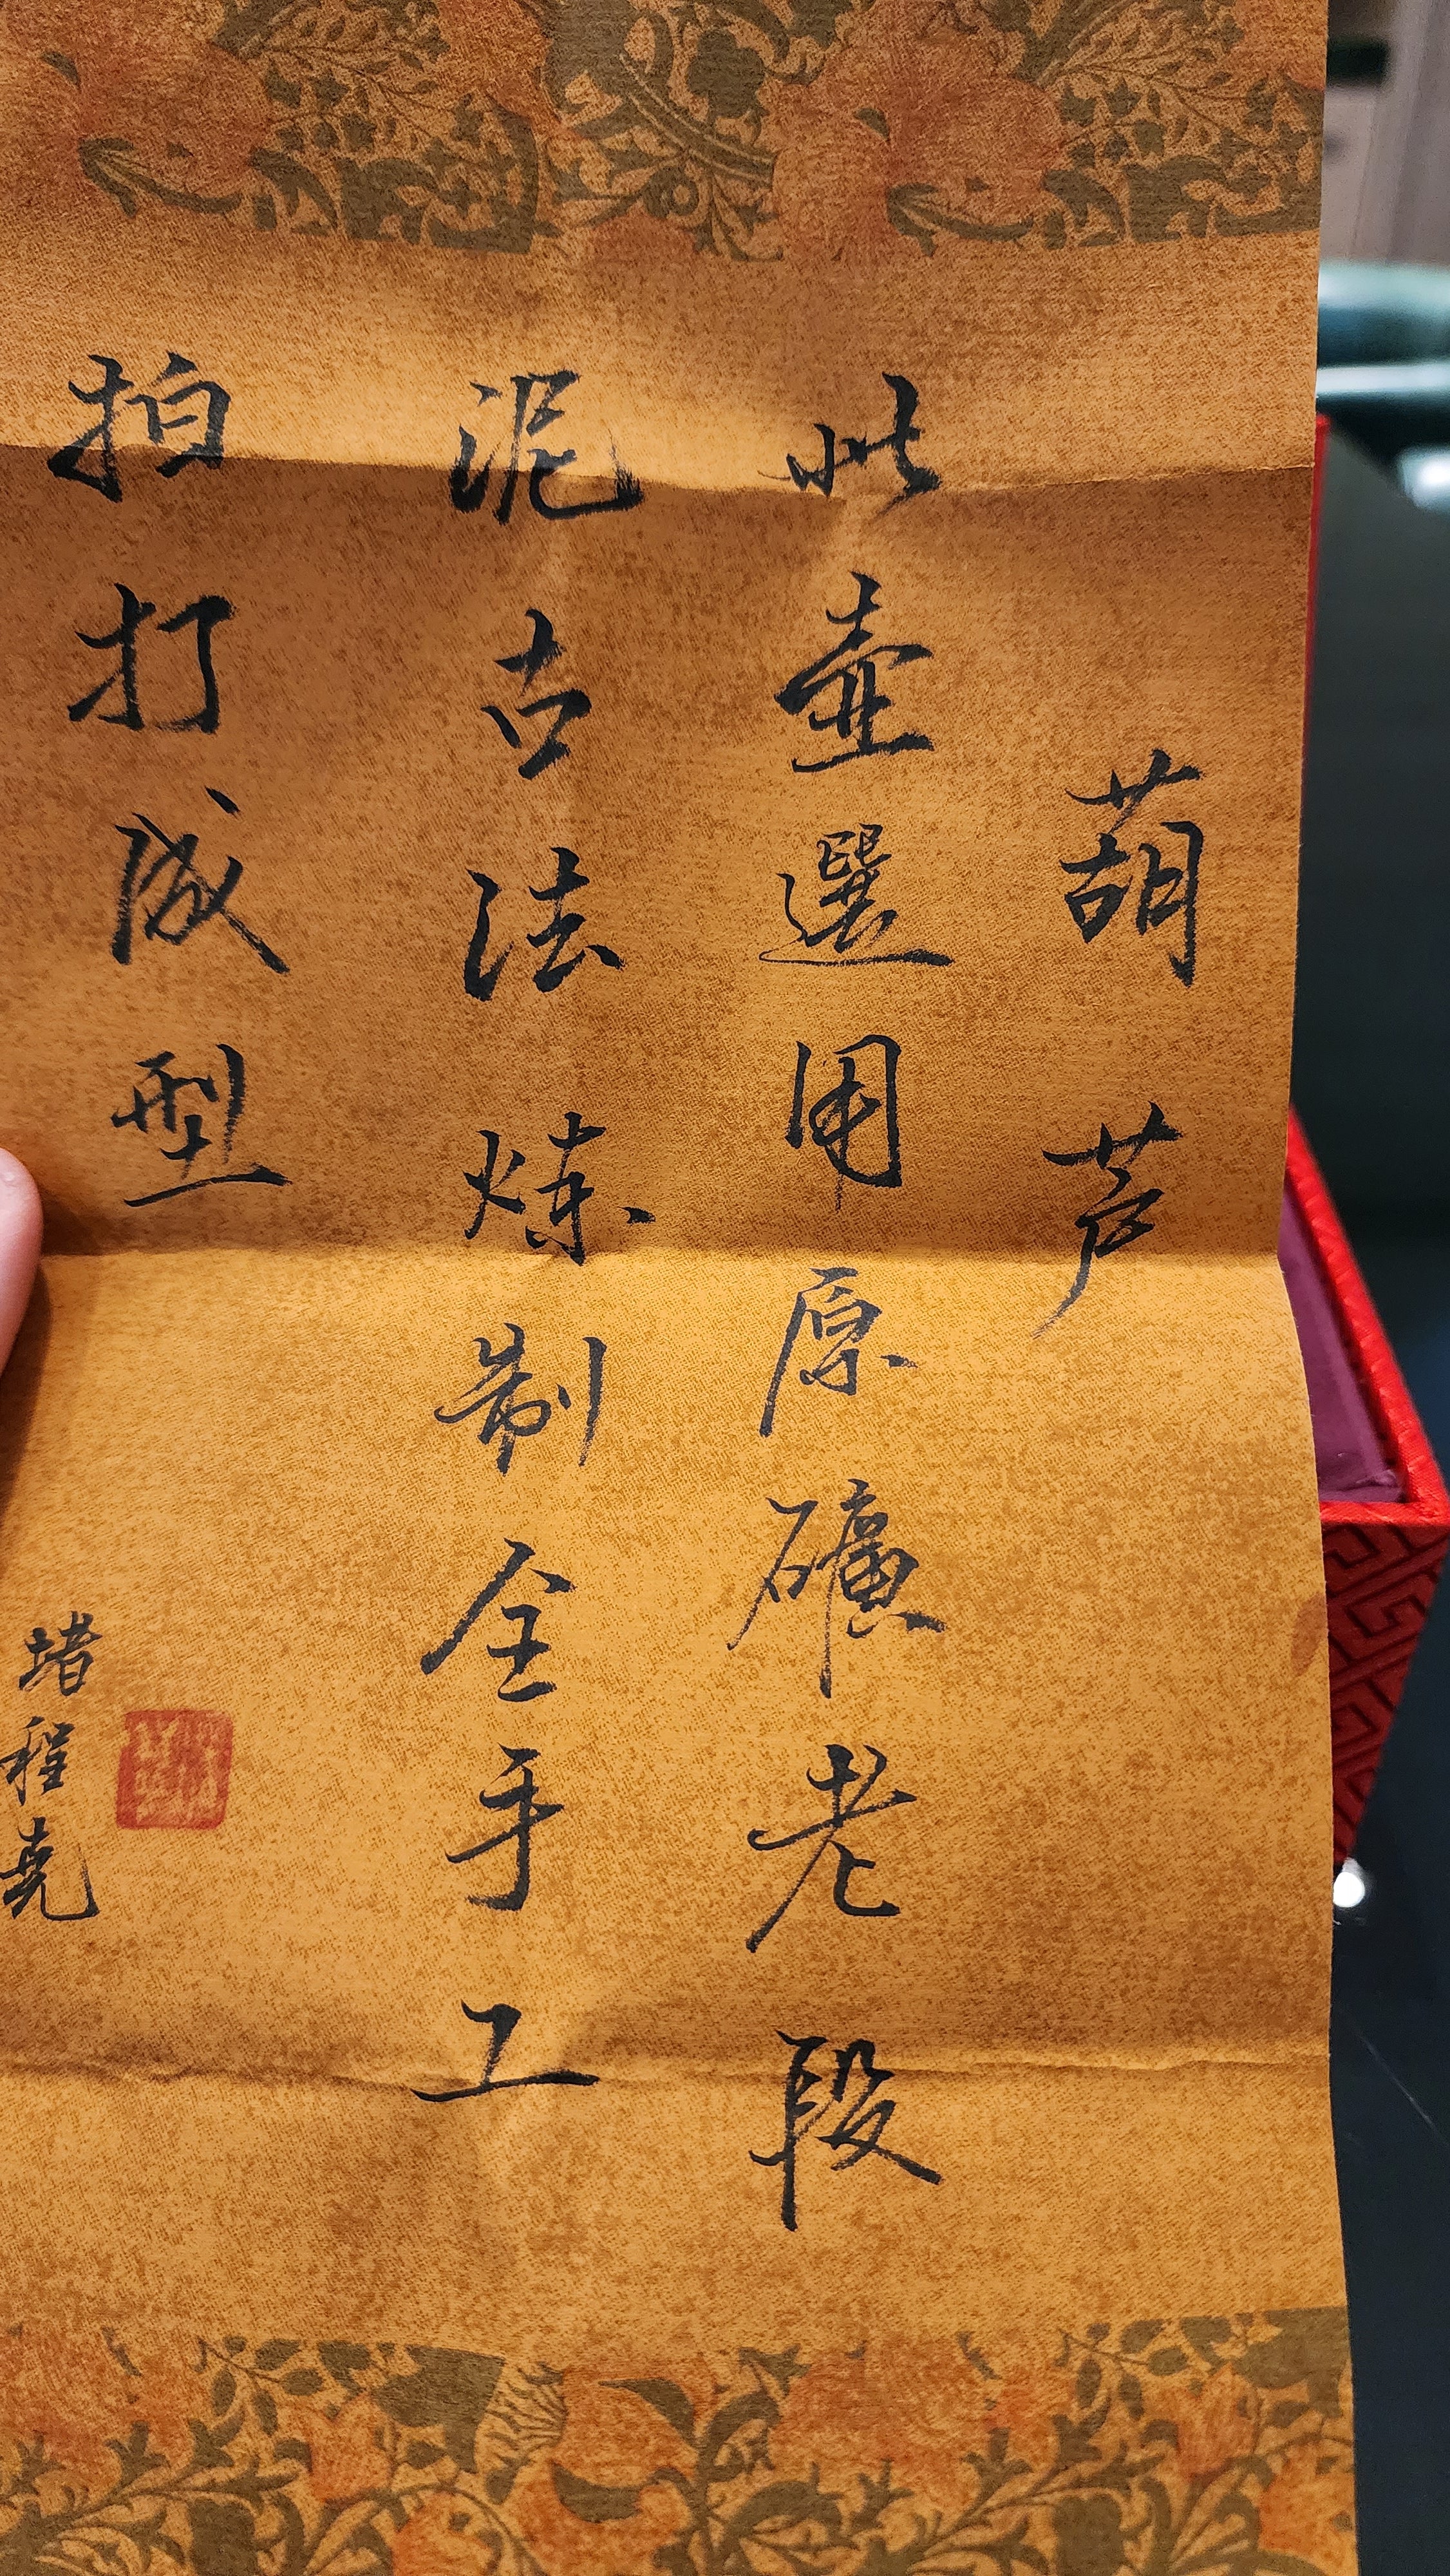 葫芦
此壶選用原礦老段
泥古法炼制全手工
拍打成型
堵程尭